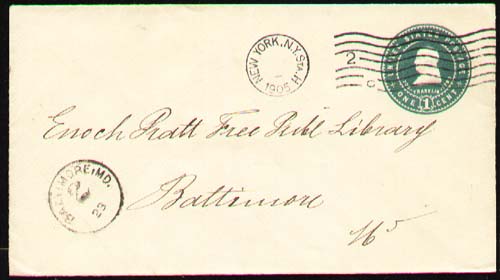 NEW YORK, N.Y. STA. H
1905
2
UNITED STATES POSTAGE
FRANKLIN
ONE 1 CENT
Enoch Pratt Free Publ Library
Baltimore
Md
BALTIMORE, MD.
2
23